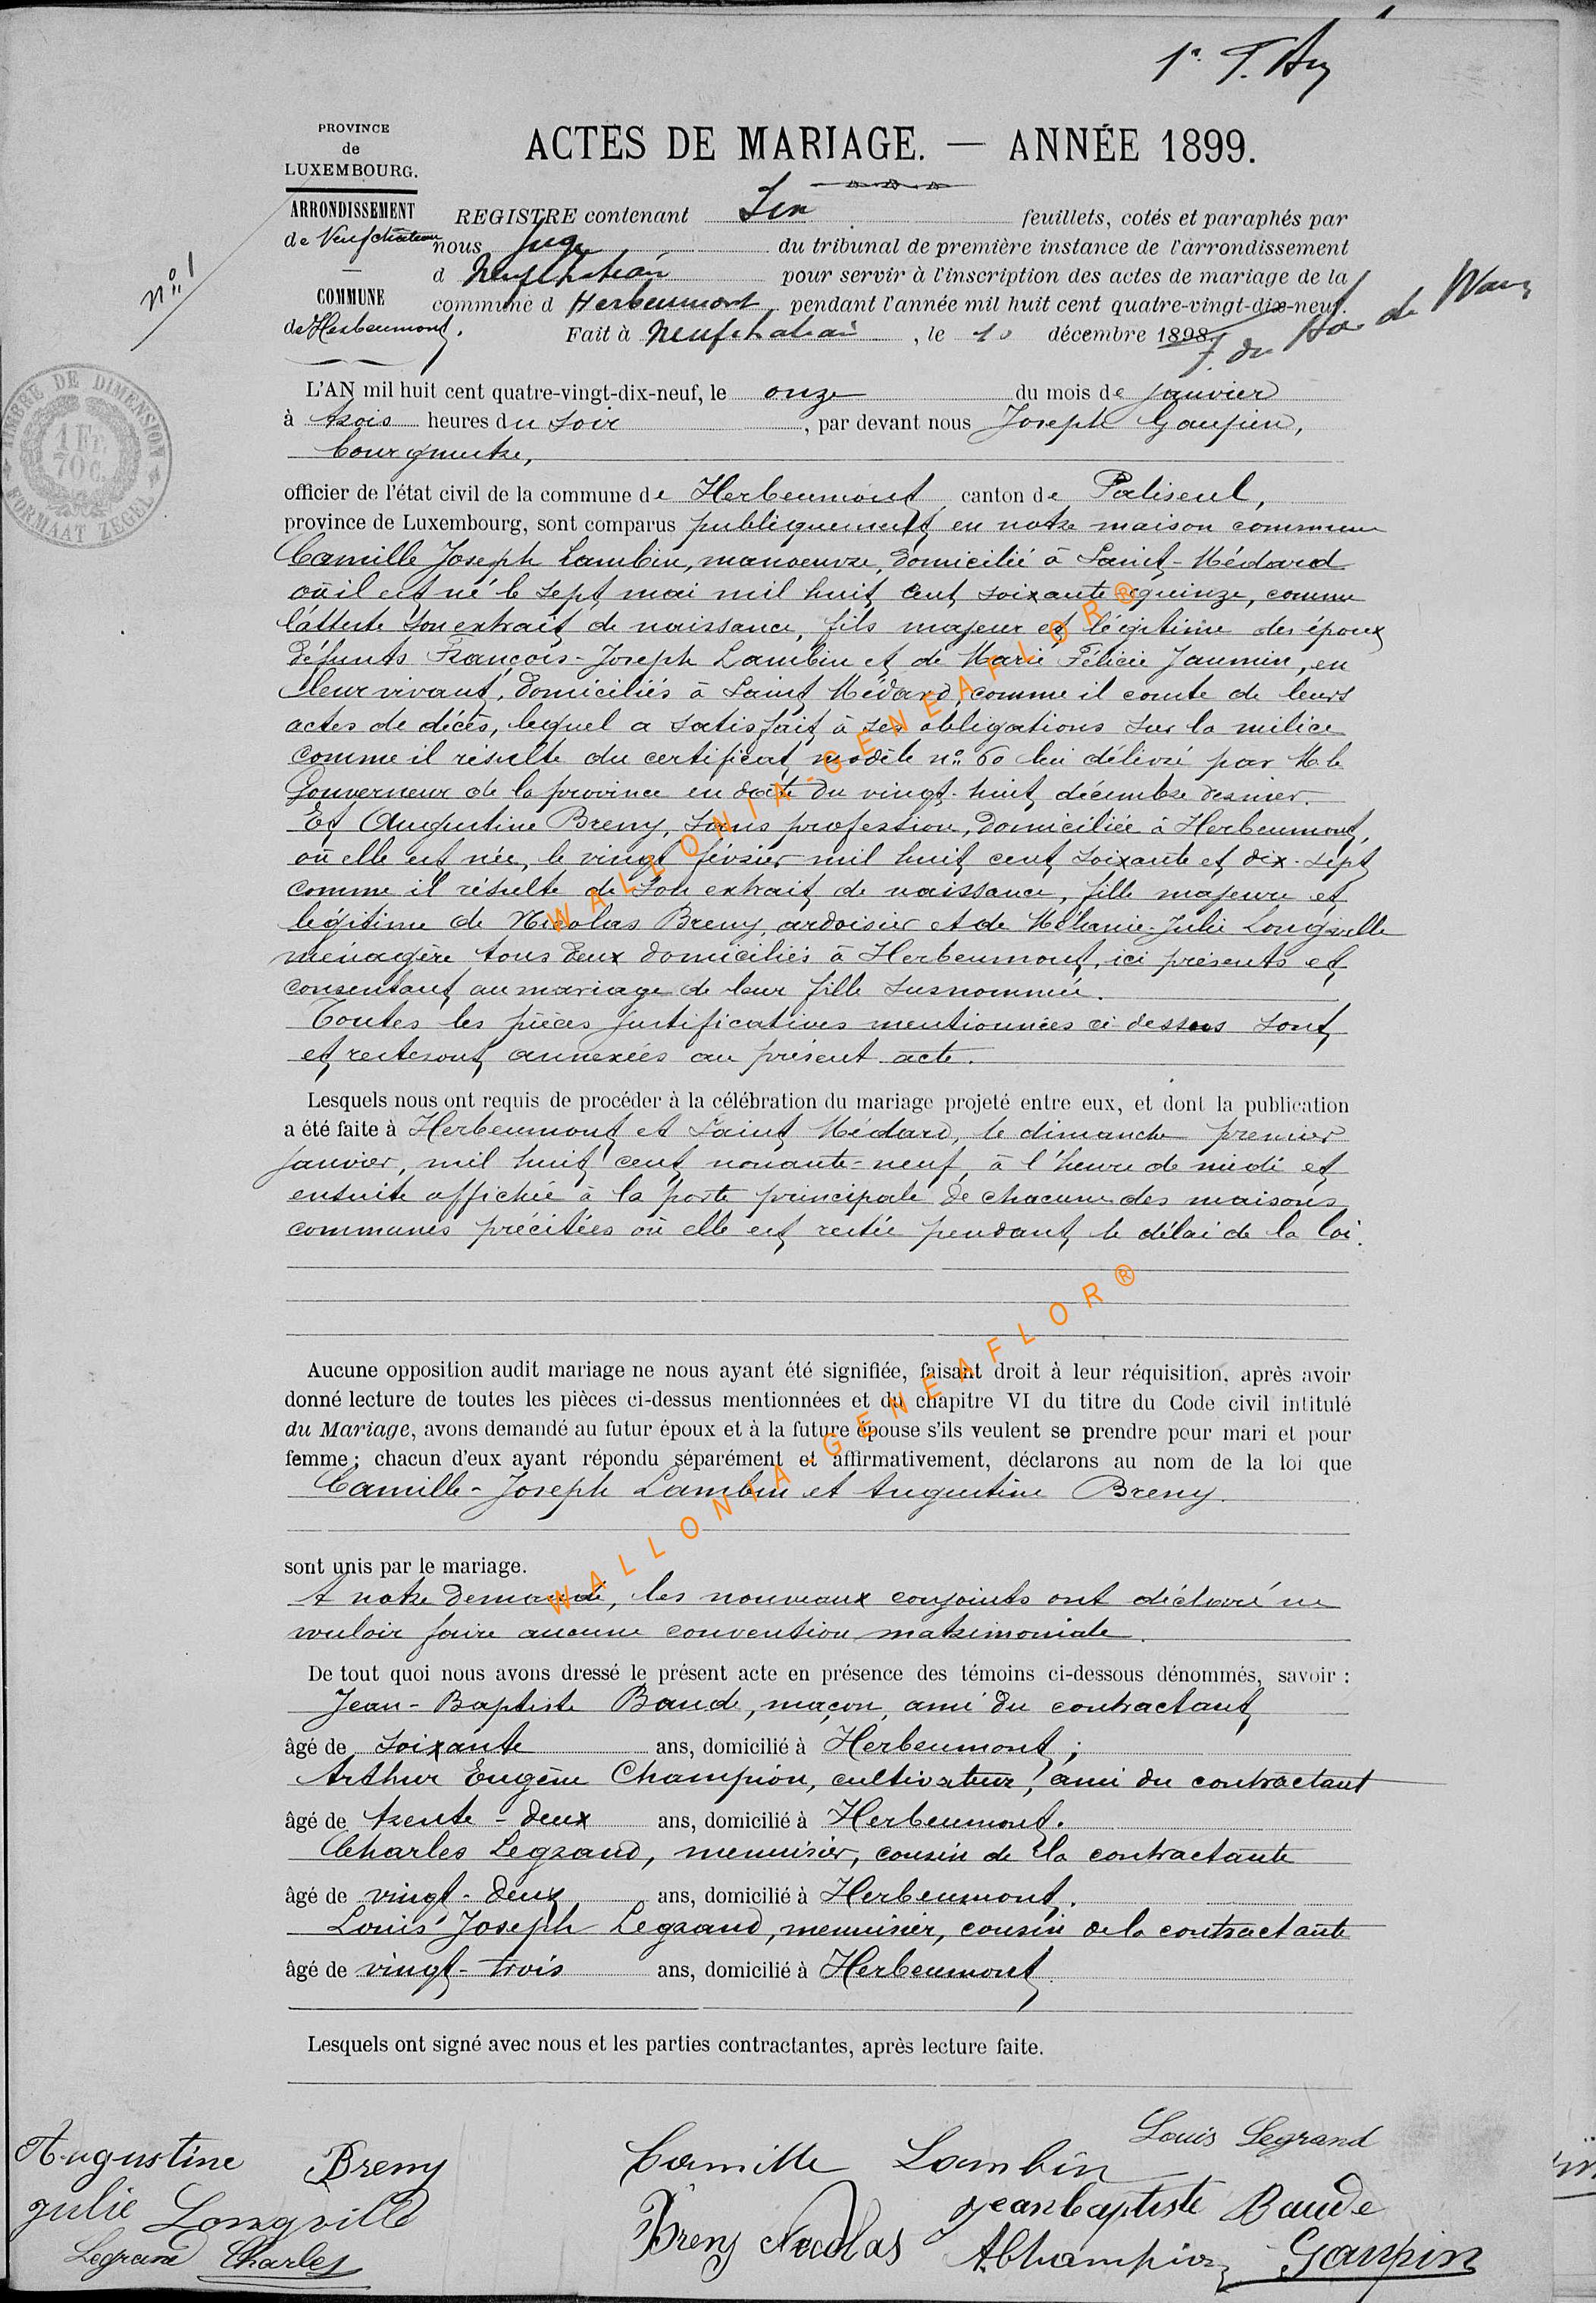 PROVINCE
de
LUXEMBOURG.
ARRONDISSEMENT
de Neufchâteau
COMMUNE
de Herbeumont.
No 1
TIMBRE DE DIMENSION
1 Fr.
70 C.
FORMAAT ZEGEL
ACTES DE MARIAGE. — ANNÉE 1899.
REGISTRE contenant feuillets, cotés et paraphés par
nous Juge du tribunal de première instance de l'arrondissement
d Neufchateau pour servir à l'inscription des actes de mariage de la
commune d Herbeumont pendant l'année mil huit cent quatre-vingt-dix-neuf.
Fait à Neufchateau, le 10 décembre 1898
L'AN mil huit cent quatre-vingt-dix-neuf, le onze du mois de janvier
à trois heures du soir, par devant nous Joseph Gaupin,
bourgmestre,
officier de l'état civil de la commune de Herbeumont, canton de Paliseul,
province de Luxembourg, sont comparus publiquement en notre maison commune
Camille Joseph Lambin, manoeuvre, domicilié à Saint-Médard
où il est né le sept mai mil huit cent soixante quinze, comme
l'atteste son extrait de naissance, fils majeur et légitime des époux
défunts François-Joseph Lambin et de Marie Félicie Jaumin, en
leur vivant, domiciliés à Saint Médard, comme il conste de leurs
actes de décès, lequel a satisfait à ses obligations sur la milice
comme il résulte du certificat modèle no 60 lui délivré par M. le
Gouverneur de la province en date du vingt-huit décembre dernier.
Et Augustine Breny, sans profession, domiciliée à Herbeumont,
où elle est née, le vingt février mil huit cent soixante et dix-sept
comme il résulte de son extrait de naissance, fille majeure et
légitime de Nicolas Breny, ardoisier et de Mélanie-Julie Longville
ménagère tous deux domiciliés à Herbeumont, ici présents et
consentant au mariage de leur fille susnommée.
Toutes les pièces justificatives mentionnées ci dessus sont
et resteront annexées au présent acte.
Lesquels nous ont requis de procéder à la célébration du mariage projeté entre eux, et dont la publication
a été faite à Herbeumont et Saint Médard, le dimanche premier
janvier, mil huit cent nonante-neuf, à l'heure de midi et
ensuite affichée à la porte principale de chacune des maisons
communes précitées où elle est restée pendant le délai de la loi.
Aucune opposition audit mariage ne nous ayant été signifiée, faisant droit à leur réquisition, après avoir
donné lecture de toutes les pièces ci-dessus mentionnées et du chapitre VI du titre du Code civil intitulé
du Mariage, avons demandé au futur époux et à la future épouse s'ils veulent se prendre pour mari et pour
femme ; chacun d'eux ayant répondu séparément et affirmativement, déclarons au nom de la loi que
Camille-Joseph Lambin et Augustine Breny.
sont unis par le mariage.
A notre demande, les nouveaux conjoints ont déclaré ne
vouloir faire aucune convention matrimoniale.
De tout quoi nous avons dressé le présent acte en présence des témoins ci-dessous dénommés, savoir :
Jean-Baptiste Baude, maçon, ami du contractant,
âgé de soixante ans, domicilié à Herbeumont ;
Arthur Eugène Champion, cultivateur, ami du contractant
âgé de trente-deux ans, domicilié à Herbeumont.
Charles Legrand, menuisier, cousin de la contractante
âgé de vingt-deux ans, domicilié à Herbeumont.
Louis Joseph Legrand, menuisier, cousin de la contractante
âgé de vingt-trois ans, domicilié à Herbeumont
Lesquels ont signé avec nous et les parties contractantes, après lecture faite.
Louis Legrand
Augustine Breny Camille Lambin
Julie Longville Breny Nicolas Jeanbaptiste Baude
Legrand Charles A Champion Gaupin
WALLONIA-GENEAFLOR®
WALLONIA-GENEAFLOR®